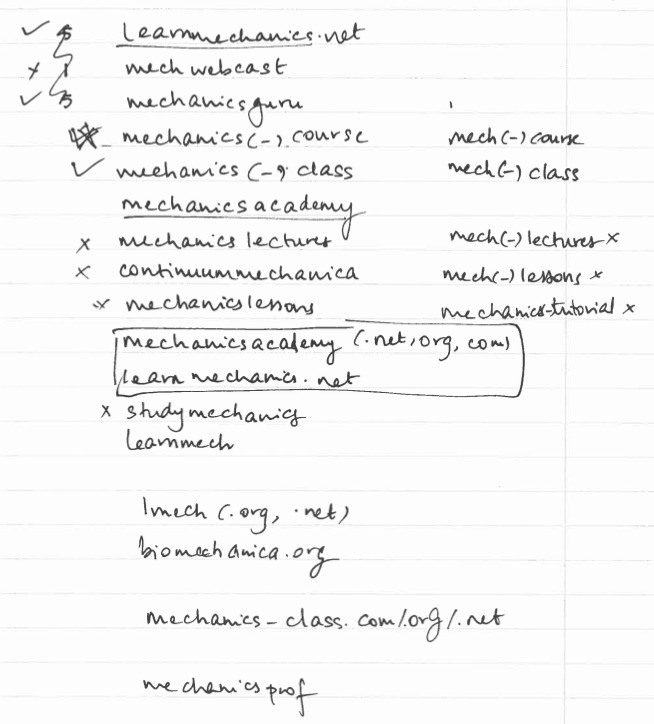 ✓ 5 Learnmechanics.net
x 1 mech webcast
✓ 5 mechanicsguru
mechanics(-) course mech(-) course
✓ mechanics (-) class mech(-) class
mechanicsacademy
x mechanics lectures mech(-) lectures x
x continuummechanica mech(-) lessons x
x mechanicslessons mechanics-tutorial x
mechanicsacademy (.net, org, com)
learnmechanics.net
x studymechanics
learnmech
lmech (.org, .net)
biomechanica.org
mechanics-class.com/.org/.net
mechanicsprof